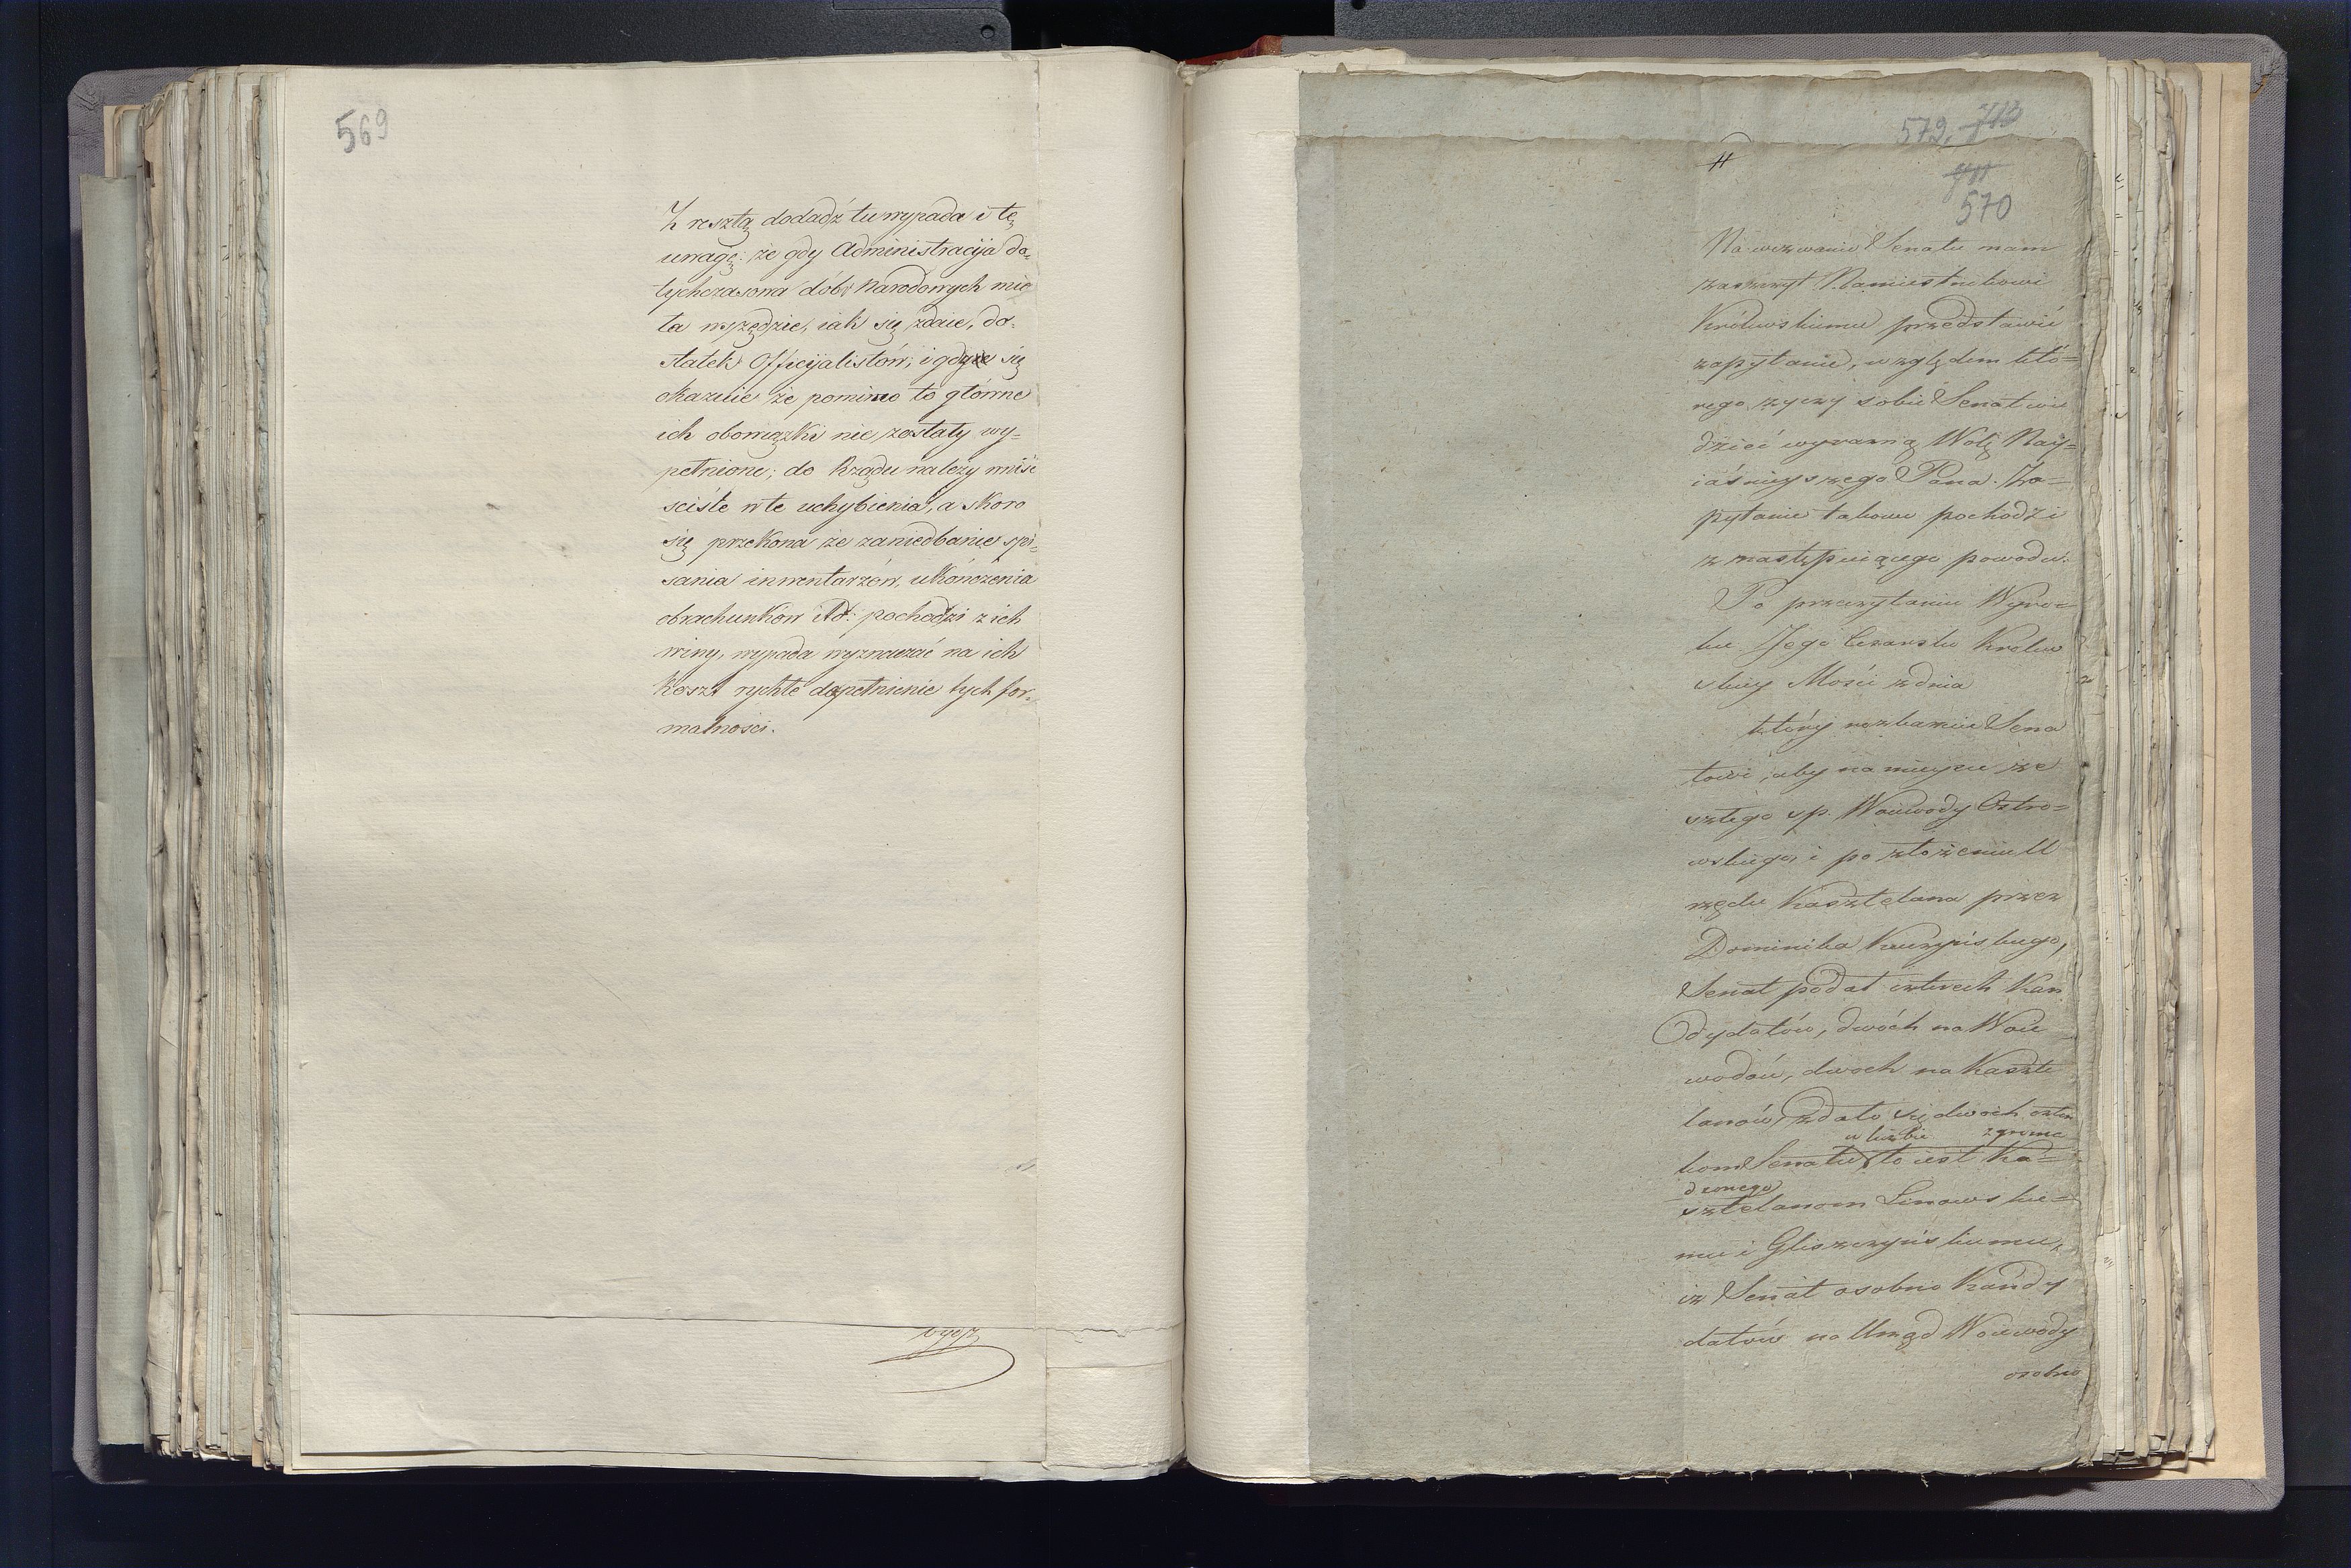 569
Z resztą dodadź tu wypada i tę
uwagę: że gdy Administracija do-
tychczasowa dóbr Narodowych mia
ła wszędzie, iak się zdaie, do-
statek Officijalistów; i gdy się
okazuie że pomimo to główne
ich obowiązki nie zostały wy-
pełnione; do Rządu należy wniść
sciśle w te uchybienia, a skoro
się przekona że zaniedbanie spi-
sania inwentarzów, ukończenia
obrachunków itd: pochodzi z ich
winy, wypada wyznaczać na ich
Koszt rychłe dopełnienie tych for-
malności.
579. 713
570
Na wezwanie Senatu mam
zaszczyt Namiestnikowi
Królewskiemu przedstawić
zapytanie, względem któ=
rego życzy sobie Senat wie
dzieć wyraźną Wolę Nay=
iaśnieyszego Pana. Za=
pytanie takowe pochodzi
z następuiącego powodu.
Po przeczytaniu Wyro
ku Jego Cesarsko Królew
skiey Mości z dnia
który rozkazuie Sena
towi, aby na mieysce ze
szłego sp. Woiewody Ostro=
wskiego, i po złożeniu U
rzędu Kasztelana przez
Dominika Kuczyńskiego,
Senat podał czterech Kan
dydatów, dwóch na Woie
wodów, dwoch na Kaszte
lanów, zdało się dwoch człon
w liczbie zgroma
kom Senatu to iest Ka=
dzonego
sztelanom Linowskie=
mu i Gliszczyńskiemu,
iż Senat osobno Kandy
datów na Urząd Woiewody
osobno